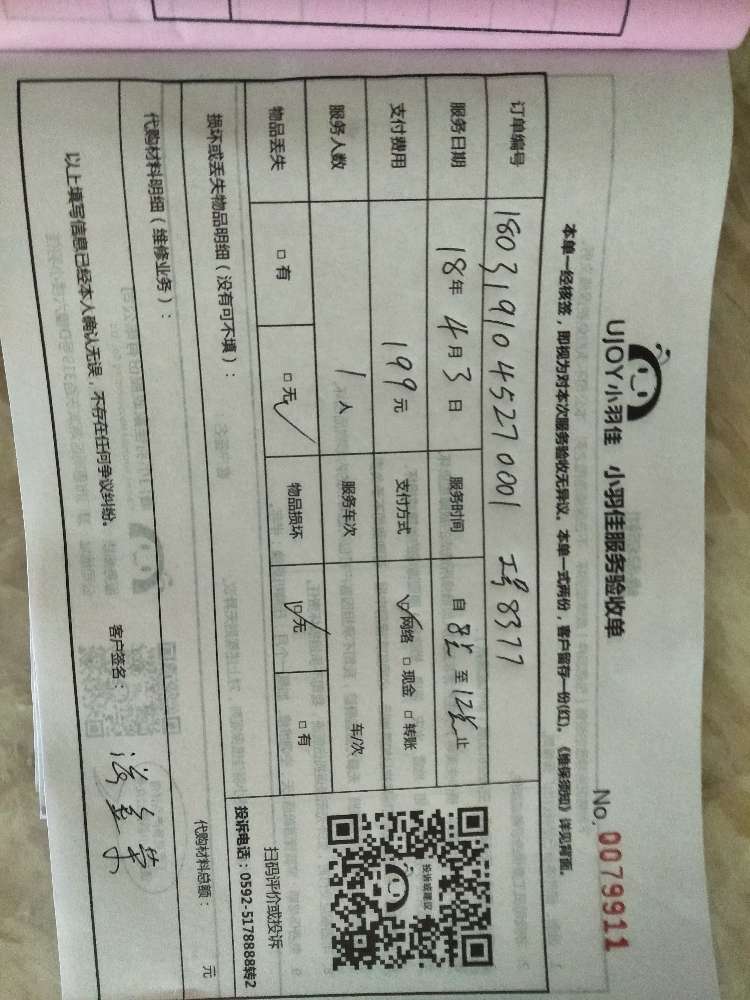 UJOY小羽佳 小羽佳服务验收单
No. 0079911
本单一经核签，即视为对本次服务验收无异议。本单一式两份，客户留存一份(红)。《维保须知》详见背面。
订单编号 1803191045270001 工号8377
服务日期 18年4月3日 服务时间 自8点至12点止
支付费用 199元 支付方式 ☑网络 □现金 □转账
服务人数 1人 服务车次 车/次
物品丢失 □有 ☑无 物品损坏 ☑无 □有
投诉或建议
扫码评价或投诉
投诉电话：0592-5178888转2
损坏或丢失物品明细（没有可不填）：
代购材料明细（维修业务）： 代购材料总额： 元
以上填写信息已经本人确认无误，不存在任何争议纠纷。 客户签名：